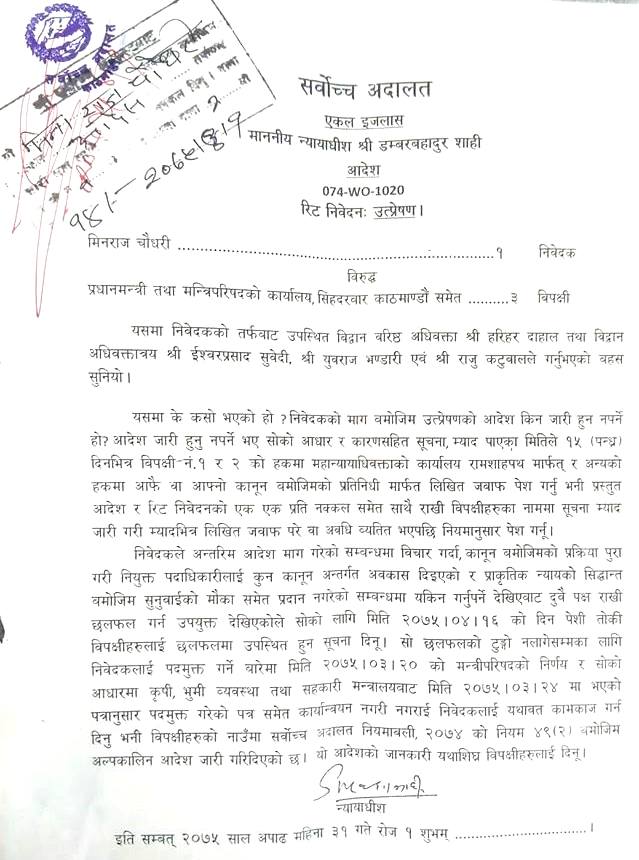 सर्वोच्च अदालत
सर्वोच्च अदालत
एकल इजलास
माननीय न्यायाधीश श्री डम्बरबहादुर शाही
आदेश
074-WO-1020
रिट निवेदनः उत्प्रेषण।
मिनराज चौधरी ................................................................१ निवेदक
विरुद्ध
प्रधानमन्त्री तथा मन्त्रिपरिषदको कार्यालय, सिंहदरवार काठमाण्डौं समेत ..........३ विपक्षी
यसमा निवेदकको तर्फवाट उपस्थित विद्वान वरिष्ठ अधिवक्ता श्री हरिहर दाहाल तथा विद्वान
अधिवक्तात्रय श्री ईश्वरप्रसाद सुवेदी, श्री युवराज भण्डारी एवं श्री राजु कटुवालले गर्नुभएको वहस
सुनियो।
यसमा के कसो भएको हो ? निवेदकको माग वमोजिम उत्प्रेषणको आदेश किन जारी हुन नपर्ने
हो? आदेश जारी हुनु नपर्ने भए सोको आधार र कारणसहित सूचना, म्याद पाएका मितिले १५ (पन्ध्र)
दिनभित्र विपक्षी नं.१ र २ को हकमा महान्यायाधिवक्ताको कार्यालय रामशाहपथ मार्फत् र अन्यको
हकमा आफै वा आफ्नो कानून वमोजिमको प्रतिनिधी मार्फत लिखित जवाफ पेश गर्नु भनी प्रस्तुत
आदेश र रिट निवेदनको एक एक प्रति नक्कल समेत साथै राखी विपक्षीहरुका नाममा सूचना म्याद
जारी गरी म्यादभित्र लिखित जवाफ परे वा अवधि व्यतित भएपछि नियमानुसार पेश गर्नू।
निवेदकले अन्तरिम आदेश माग गरेको सम्वन्धमा विचार गर्दा, कानून वमोजिमको प्रक्रिया पुरा
गरी नियुक्त पदाधिकारीलाई कुन कानून अन्तर्गत अवकास दिइएको र प्राकृतिक न्यायको सिद्धान्त
वमोजिम सुनुवाईको मौका समेत प्रदान नगरेको सम्वन्धमा यकिन गर्नुपर्ने देखिएवाट दुवै पक्ष राखी
छलफल गर्न उपयुक्त देखिएकोले सोको लागि मिति २०७५।०४।१६ को दिन पेशी तोकी
विपक्षीहरुलाई छलफलमा उपस्थित हुन सूचना दिनू। सो छलफलको टुङ्गो नलागेसम्मका लागि
निवेदकलाई पदमुक्त गर्ने वारेमा मिति २०७५।०३।२० को मन्त्रीपरिषदको निर्णय र सोको
आधारमा कृषी, भुमी व्यवस्था तथा सहकारी मन्त्रालयवाट मिति २०७५।०३।२४ मा भएको
पत्रानुसार पदमुक्त गरेको पत्र समेत कार्यान्वयन नगरी नगराई निवेदकलाई यथावत कामकाज गर्न
दिनु भनी विपक्षीहरुको नाउँमा सर्वोच्च अदालत नियमावली, २०७४ को नियम ४९(२) वमोजिम
अल्पकालिन आदेश जारी गरिदिएको छ। यो आदेशको जानकारी यथाशिघ्र विपक्षीहरुलाई दिनू।
न्यायाधीश
इति सम्वत् २०७५ साल अषाढ महिना ३१ गते रोज १ शुभम् ..............................।